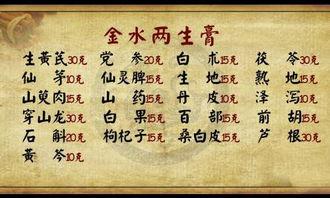 金水两生膏
生黄芪30克 党参20克 白术15克 茯苓30克
仙茅10克 仙灵脾15克 生地15克 熟地15克
山萸肉15克 山药15克 丹皮10克 泽泻10克
穿山龙30克 白果15克 百部15克 前胡15克
石斛20克 枸杞子15克 桑白皮15克 芦根30克
黄芩10克